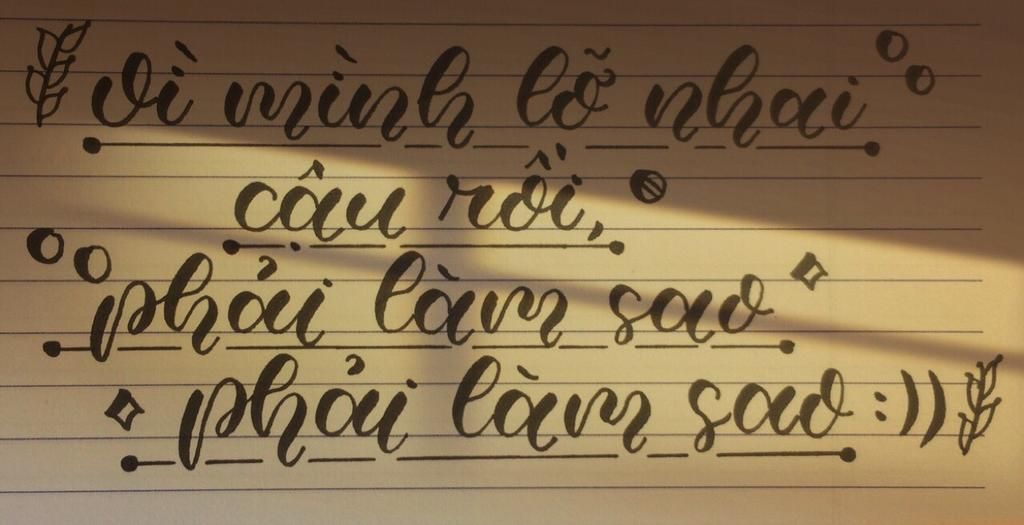 vì mình lỡ nhai
câu rồi,
phải làm sao
phải làm sao :))